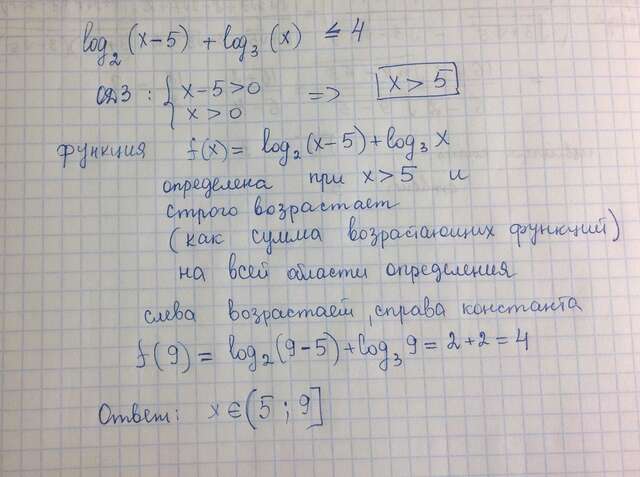 log₂(x-5) + log₃(x) ≤ 4
ОДЗ: { x-5>0 => x>5
x>0
функция f(x) = log₂(x-5)+log₃x
определена при x>5 и
строго возрастает
(как сумма возрастающих функций)
на всей области определения
слева возрастает, справа константа
f(9) = log₂(9-5)+log₃9 = 2+2=4
Ответ: x∈(5;9]